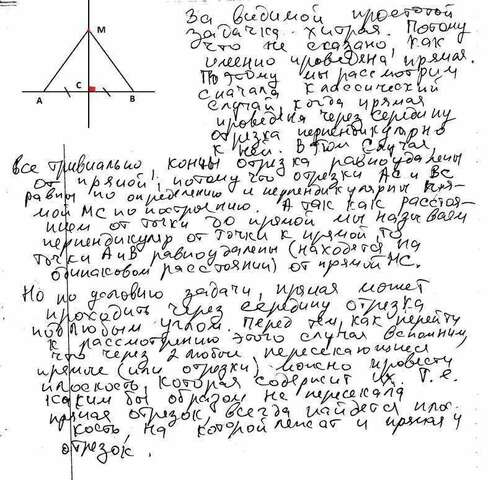 M
A
C
B
За видимой простотой
задачка хитрая. Потому
что не сказано как
именно проведена прямая.
Поэтому мы рассмотрим
сначала классический
случай, когда прямая
проведена через середину
отрезка перпендикулярно
к ней. В этом случае,
все тривиально концы отрезка равноудалены
от прямой, потому что отрезки AC и BC
равны по определению и перпендикулярны пря-
мой MC по построению. А так как расстоя-
нием от точки до прямой мы называем
перпендикуляр от точки к прямой, то
точки A и B равноудалены (находятся на
одинаковом расстоянии) от прямой MC.
Но по условию задачи, прямая может
проходить через середину отрезка
под любым углом. Перед тем, как перейти
к рассмотрению этого случая вспомним,
что через 2 любые пересекающиеся
прямые (или отрезки) можно провести
плоскость, которая содержит их. Т.е.
каким бы образом не пересекала
прямая отрезок, всегда найдется плос-
кость на которой лежат и прямая и
отрезок.